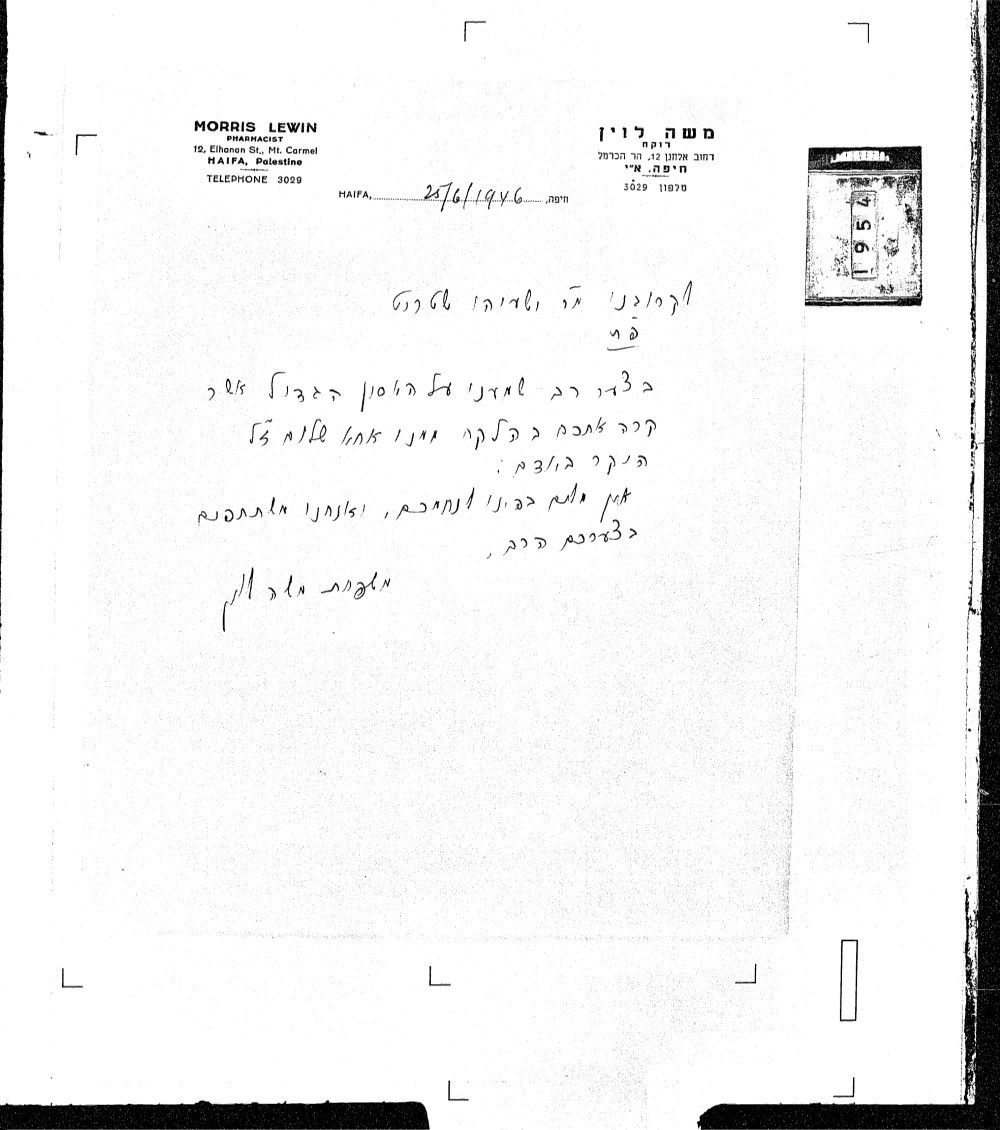 MORRIS LEWIN
PHARMACIST
12, Elhanan St., Mt. Carmel
HAIFA, Palestine
TELEPHONE 3029
משה לוין
רוקח
רחוב אלחנן 12, הר הכרמל
חיפה. א"י
טלפון 3029
HAIFA, 25/6/1946 חיפה,
1954
לקרובנו מר ישעיהו שטרנט
פה
בצער רב שמענו על האסון הגדול אשר
קרה אתכם בהלקח ממנו אחא שלום ז"ל
היקר באדם:
אין מלים בפינו לנחמכם, ואנחנו משתתפים
בצערכם הרב,
משפחת משה לוין